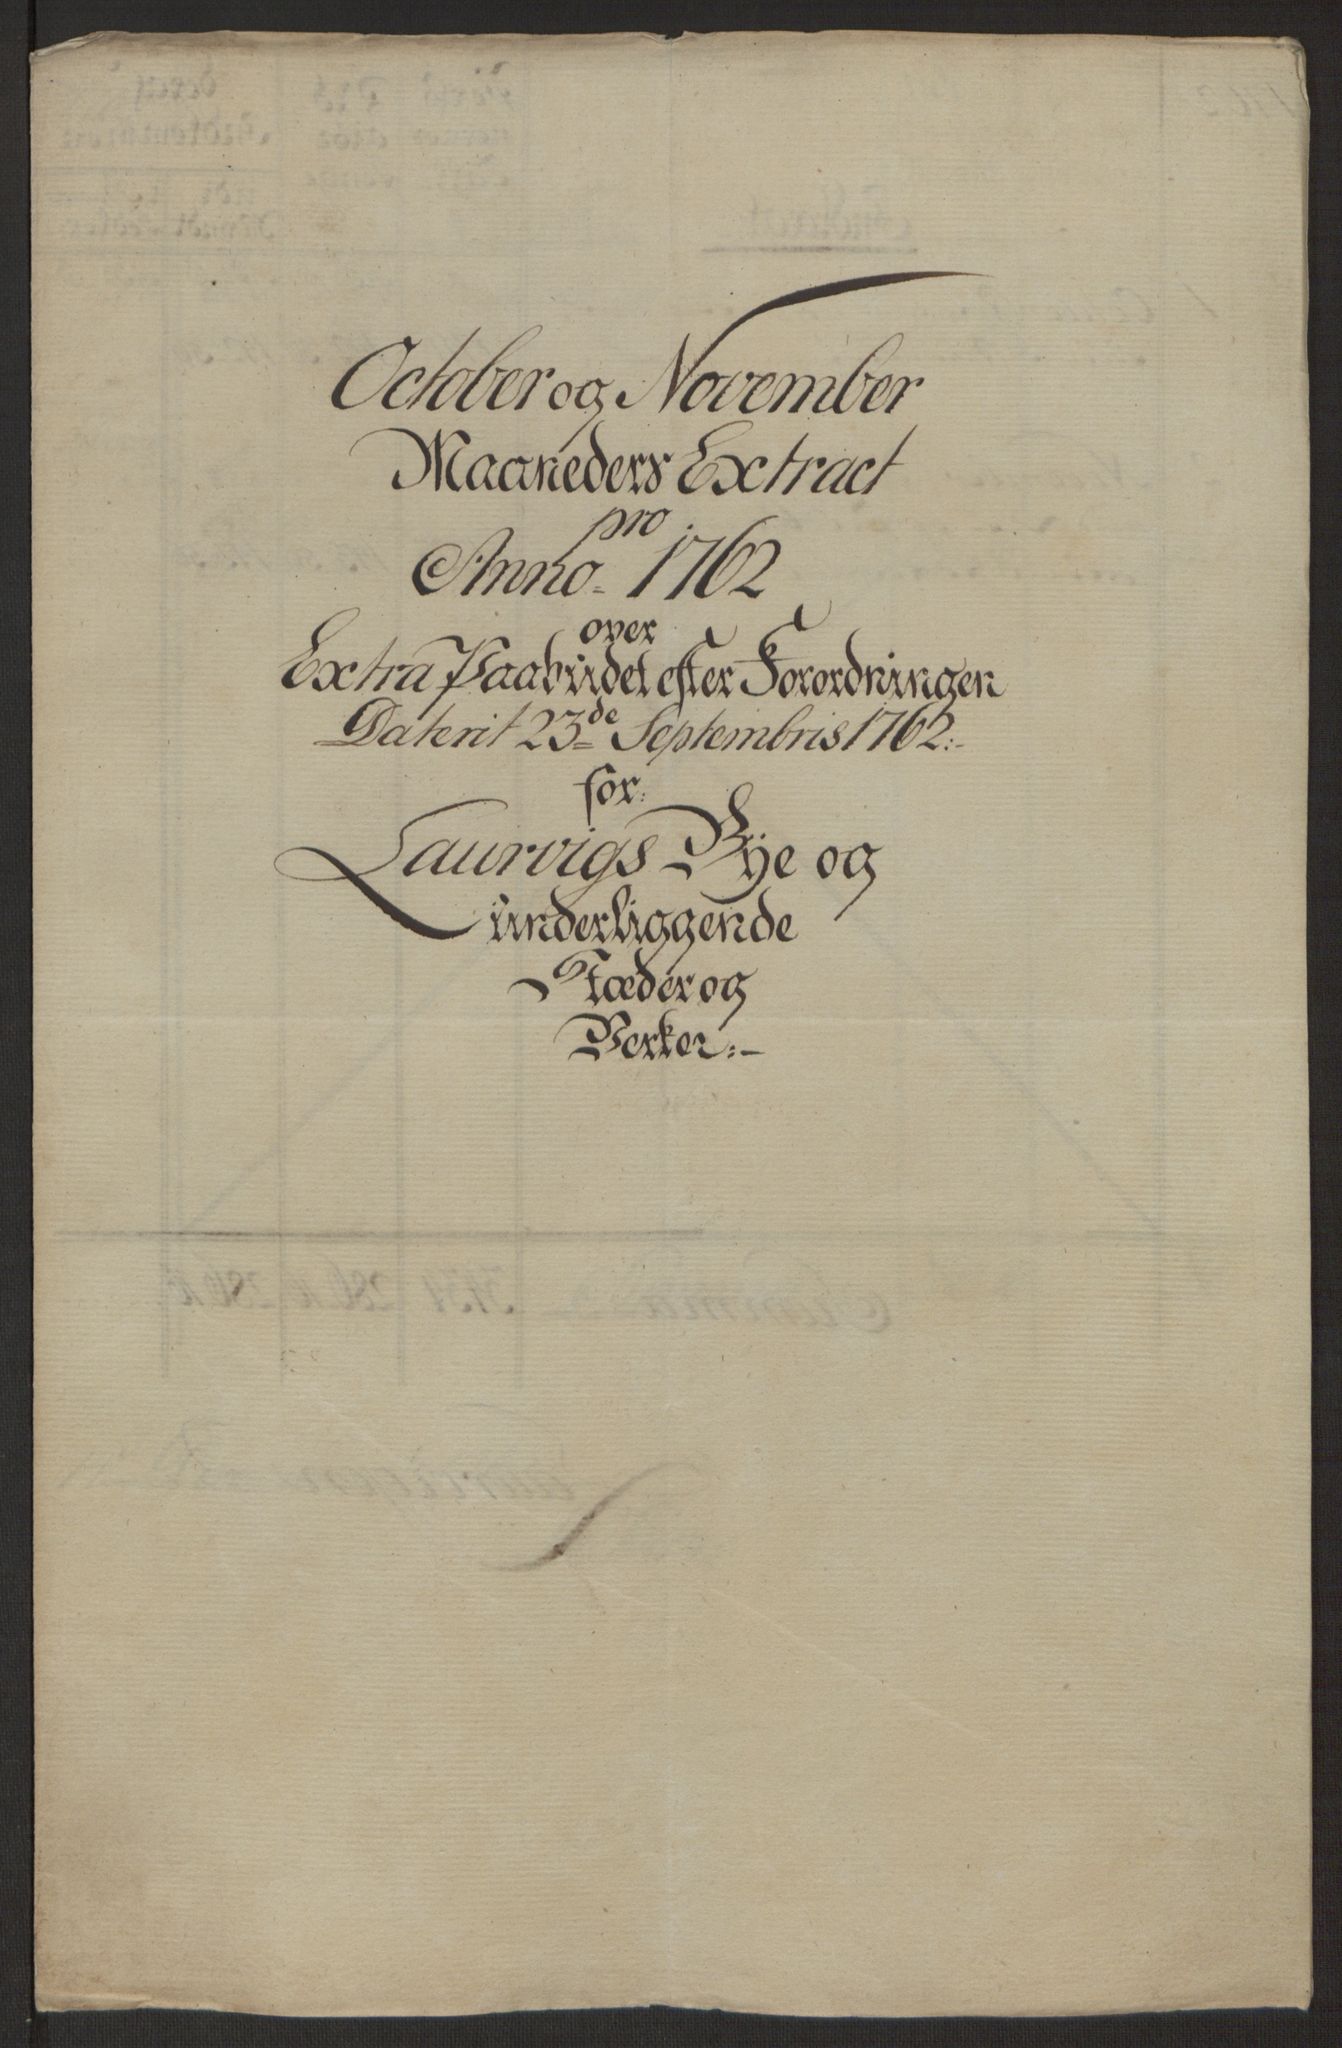 October og November
Maaneders Extract
pro
Anno 1762
over
Extra Paabudet efter Forordningen
Daterit 23de Septembris 1762:-
for:
Laurvigs Bye og
underliggende
Stæder og
Verker:-